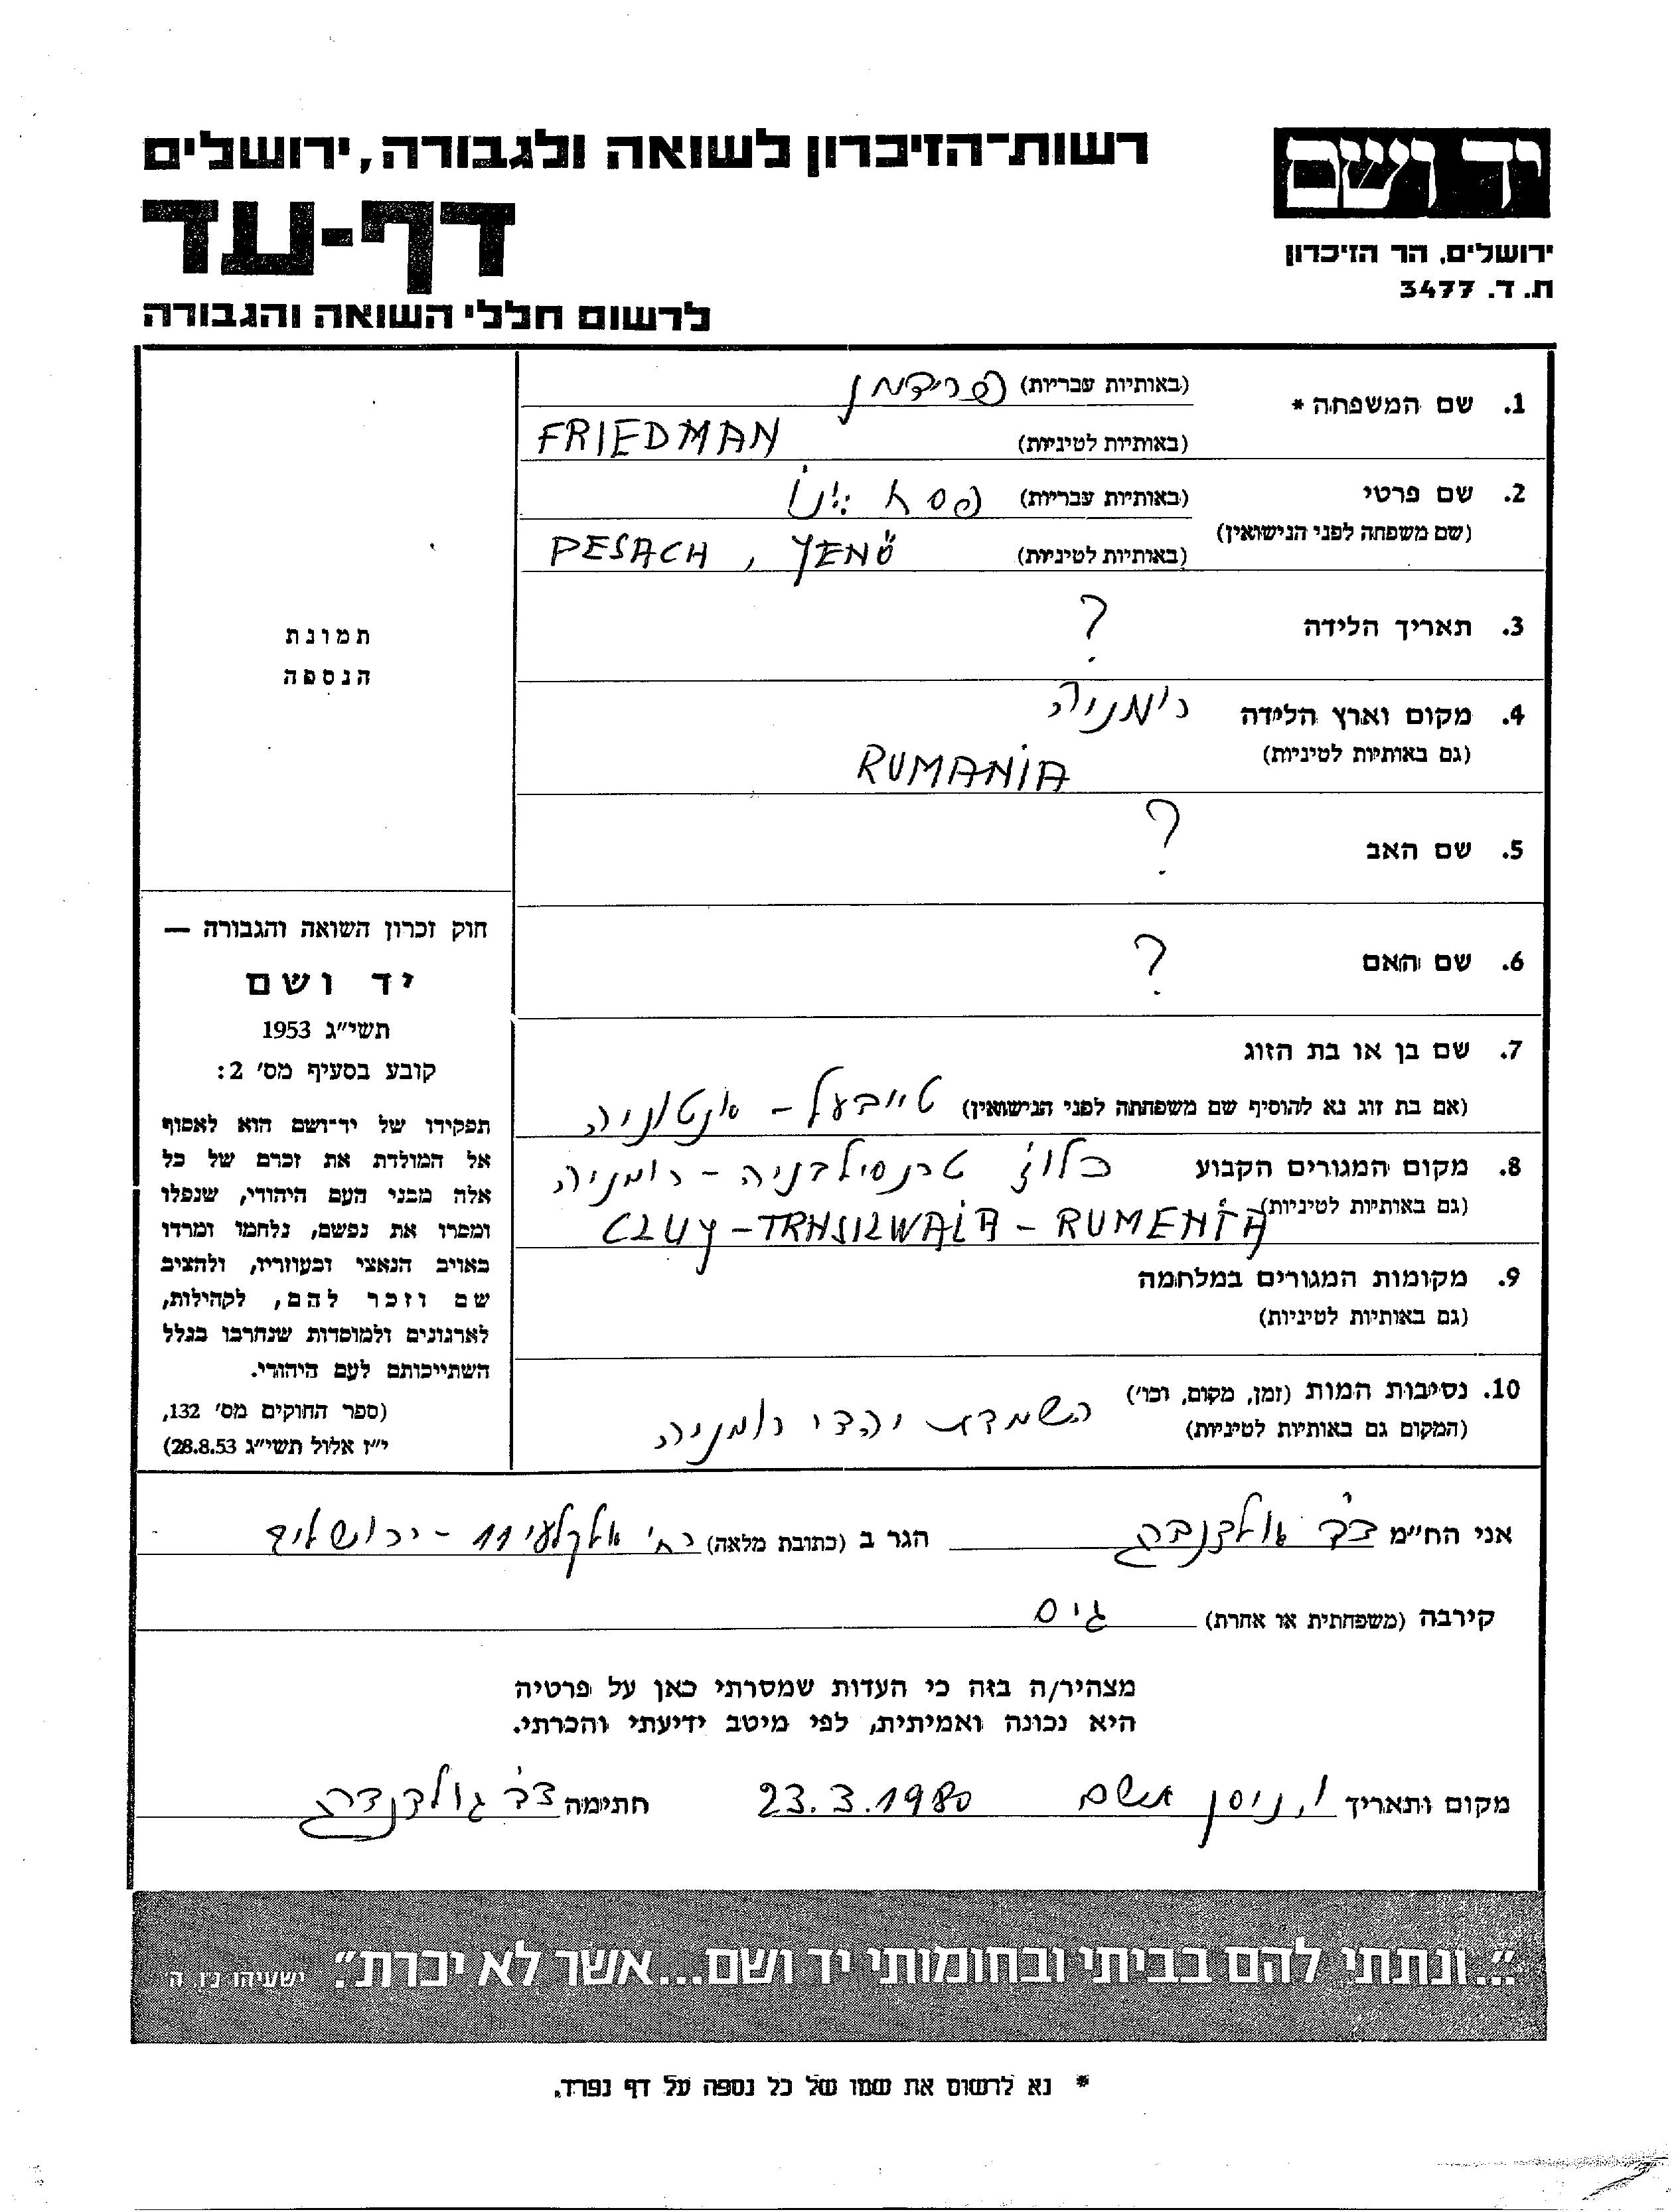 יד ושם
ירושלים, הר הזיכרון
ת. ד. 3477
רשות־הזיכרון לשואה ולגבורה, ירושלים
דף-עד
לרשום חללי השואה והגבורה
1. שם המשפחה * (באותיות עבריות) פרידמן
(באותיות לטיניות) FRIEDMAN
2. שם פרטי (באותיות עבריות) פסח ינו
(שם משפחה לפני הנישואין)
(באותיות לטיניות) PESACH, YENŐ
3. תאריך הלידה ?
4. מקום וארץ הלידה רומניה
(גם באותיות לטיניות) RUMANIA
5. שם האב ?
6. שם האם ?
7. שם בן או בת הזוג
(אם בת זוג נא להוסיף שם משפחתה לפני הנישואין) טייבעל - אנטוניה
8. מקום המגורים הקבוע כלוז' טרנסילבניה - רומניה
(גם באותיות לטיניות) CLUY - TRNSILWAIA - RUMENIA
9. מקומות המגורים במלחמה
(גם באותיות לטיניות)
10. נסיבות המות (זמן, מקום, וכו')
(המקום גם באותיות לטיניות) השמדת יהדי רומניה
תמונת
הנספה
חוק זכרון השואה והגבורה —
יד ושם
תשי"ג 1953
קובע בסעיף מס' 2:
תפקידו של יד־ושם הוא לאסוף
אל המולדת את זכרם של כל
אלה מבני העם היהודי, שנפלו
ומסרו את נפשם, נלחמו ומרדו
באויב הנאצי ובעוזריו, ולהציב
שם וזכר להם, לקהילות,
לארגונים ולמוסדות שנחרבו בגלל
השתייכותם לעם היהודי.
(ספר החוקים מס' 132,
י"ז אלול תשי"ג 28.8.53)
אני הח"מ הגר ב (כתובת מלאה) רח' אלקלעי 11 - ירושלים
קירבה (משפחתית או אחרת) גיס
מצהיר/ה בזה כי העדות שמסרתי כאן על פרטיה
היא נכונה ואמיתית, לפי מיטב ידיעתי והכרתי.
מקום ותאריך ו' ניסן 23.3.1980 חתימה
"...ונתתי להם בביתי ובחומותי יד ושם...אשר לא יכרת". ישעיהו נ"ו, ה'
* נא לרשום את שמו של כל נספה על דף נפרד.